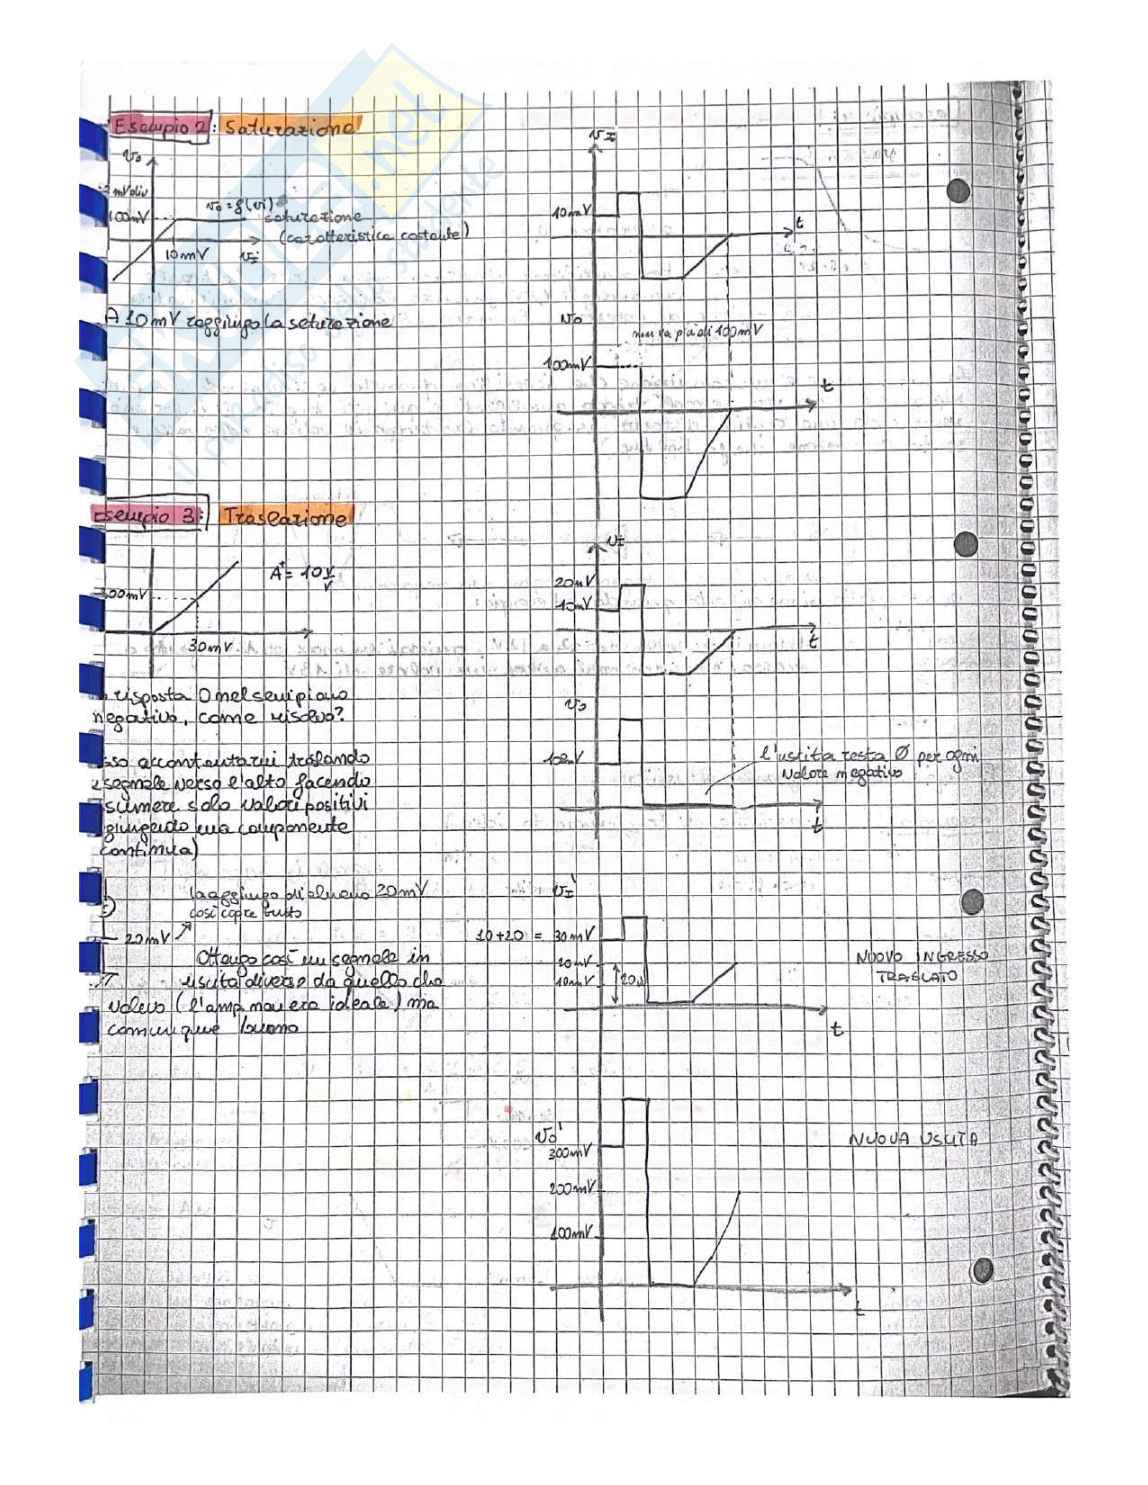 Esempio 2: Saturazione
vo
100mV
vo = f(vi)
saturazione
(caratteristica costante)
10mV
vi
A 10mV raggiungo la saturazione
vI
10mV
t
vo
non va più di 100mV
100mV
t
Esempio 3: Traslazione
A = 10 V/V
300mV
30mV
risposta 0 nel semipiano
negativo, come risolvo?
sso accontentarmi traslando
segnale verso l'alto facendo
sumere solo valori positivi
giungendo una componente
continua)
vI
20mV
10mV
t
vo
l'uscita resta Ø per ogni
valore negativo
t
aggiungo di almeno 20mV
così copre tutto
20mV
Ottengo così un segnale in
uscita diverso da quello che
volevo (l'amp. non era ideale) ma
comunque buono
vI'
10+20 = 30mV
20mV
10mV
NUOVO INGRESSO
TRASLATO
t
vo'
300mV
200mV
100mV
NUOVA USCITA
t
skuola.net